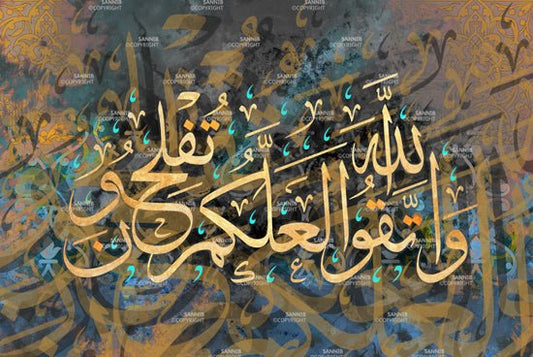 وَاتَّقُوا اللَّهَ لَعَلَّكُمْ تُفْلِحُونَ
SANNIB
©COPYRIGHT